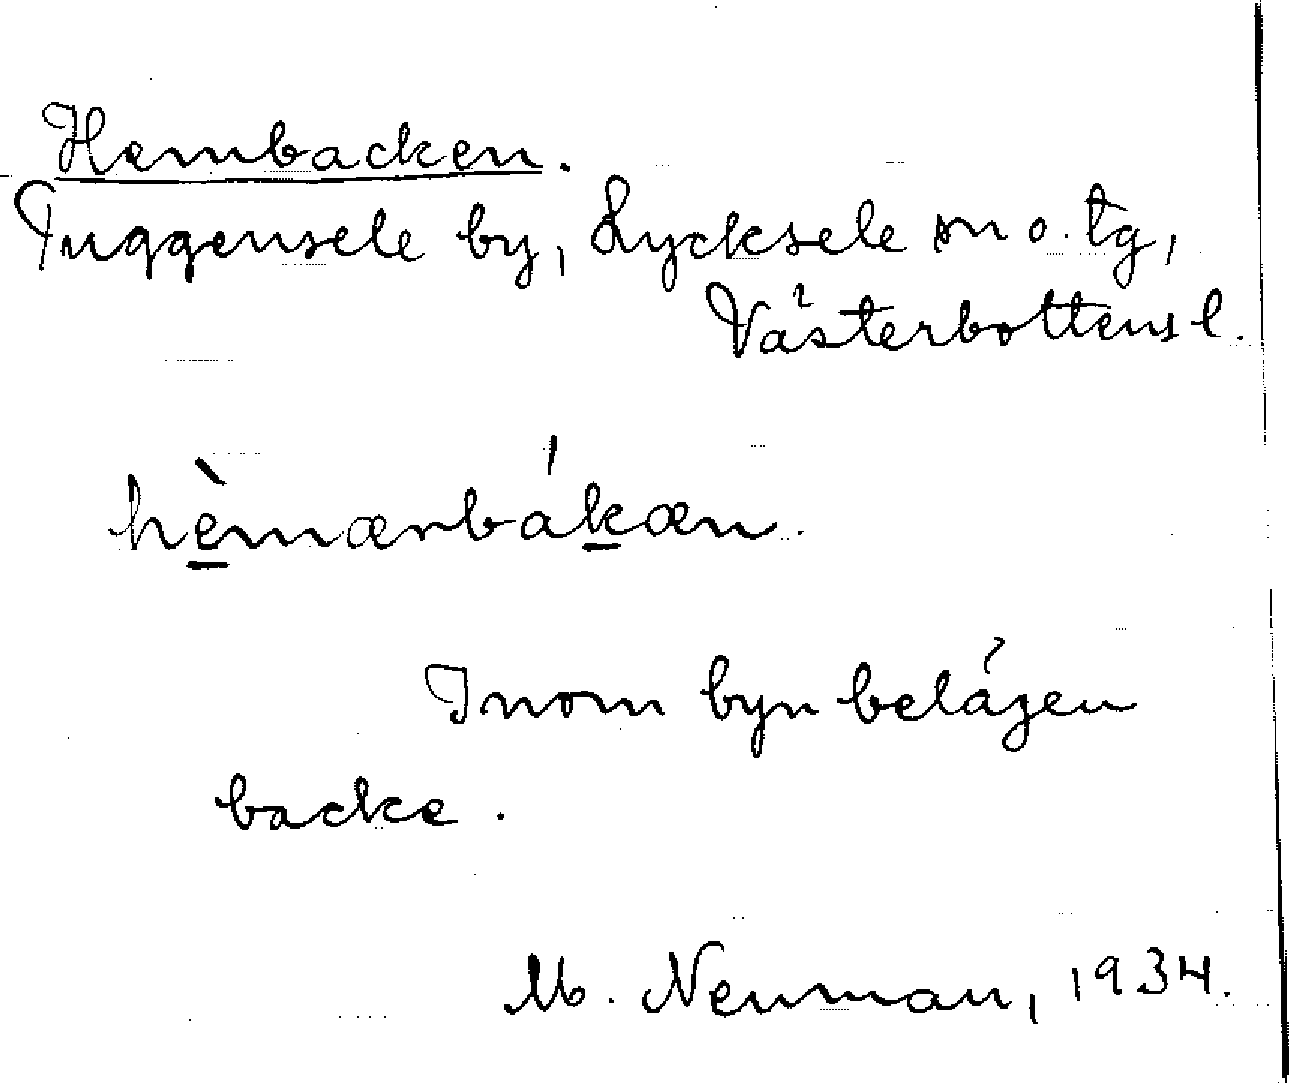 Hembacken.
Tuggensele by, Lycksele sn o. tg,
Västerbottens l.
hèmærbákæn.
Inom byn belägen
backe.
M. Neuman, 1934.